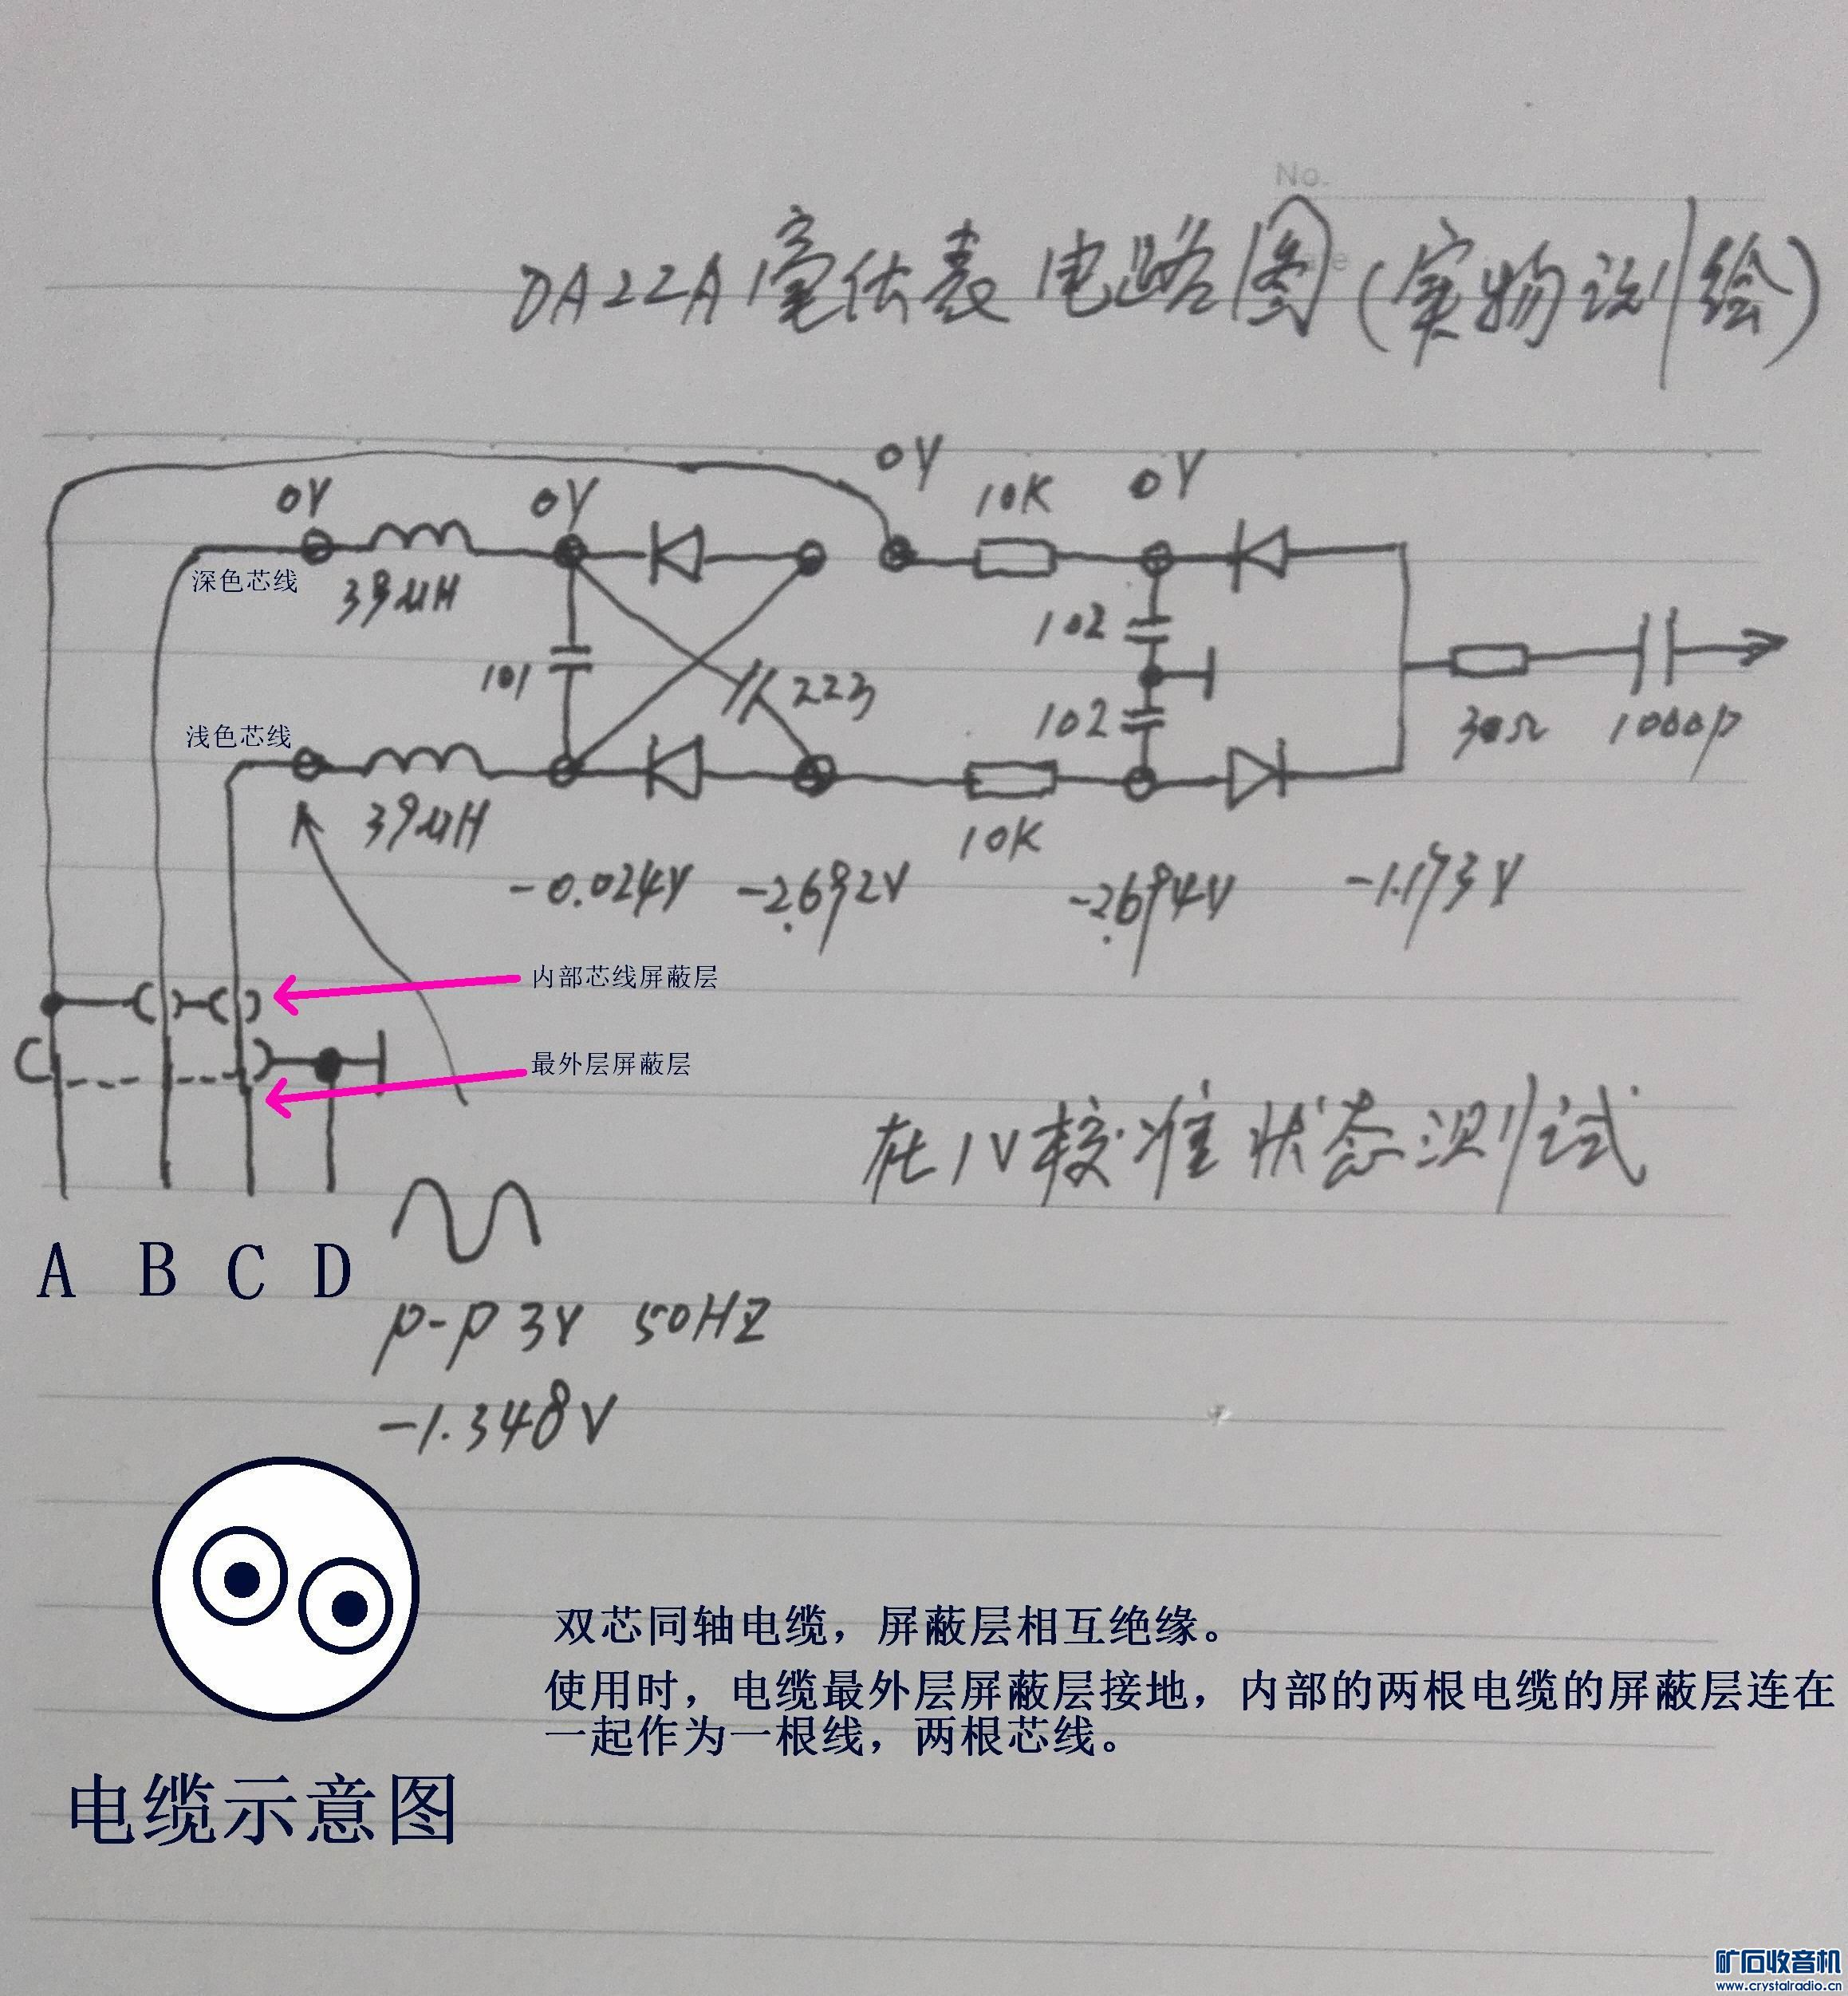 No.
DA22A毫伏表电路图(实物测绘)
0V
0V
0V
10K
0V
深色芯线
39μH
101
223
102
102
30Ω
1000p
浅色芯线
39μH
10K
-0.024V
-2.692V
-2.694V
-1.173V
内部芯线屏蔽层
最外层屏蔽层
在1V校准状态测试
A B C D
p-p 3V 50HZ
-1.348V
双芯同轴电缆，屏蔽层相互绝缘。
使用时，电缆最外层屏蔽层接地，内部的两根电缆的屏蔽层连在
一起作为一根线，两根芯线。
电缆示意图
矿石收音机
www.crystalradio.cn